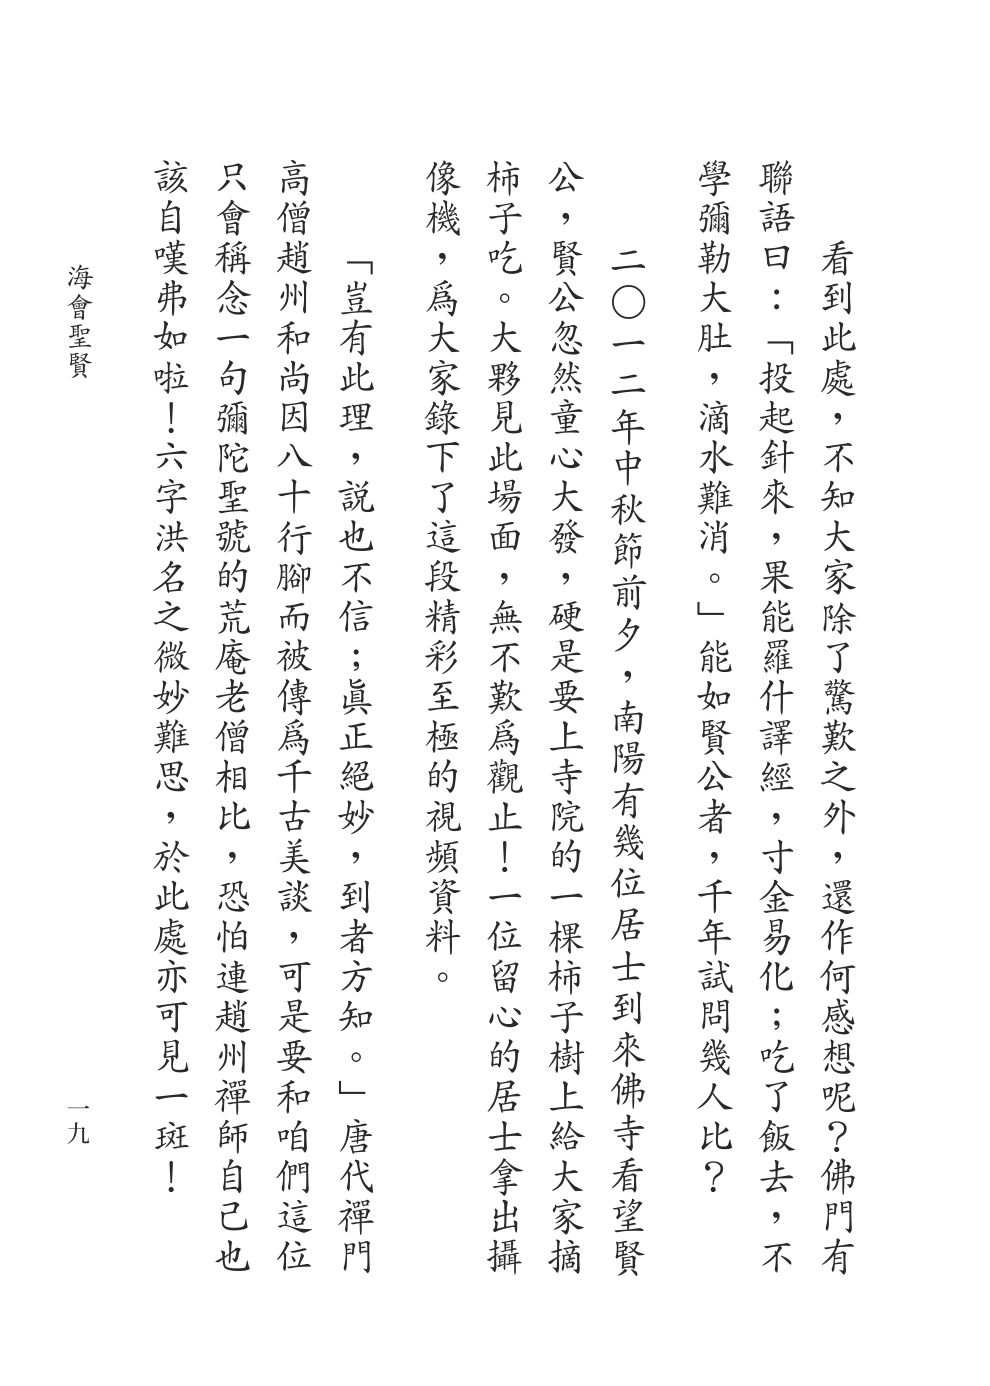 看到此處，不知大家除了驚歎之外，還作何感想呢？佛門有
聯語曰：「投起針來，果能羅什譯經，寸金易化；吃了飯去，不
學彌勒大肚，滴水難消。」能如賢公者，千年試問幾人比？
二〇一二年中秋節前夕，南陽有幾位居士到來佛寺看望賢
公，賢公忽然童心大發，硬是要上寺院的一棵柿子樹上給大家摘
柿子吃。大夥見此場面，無不歎爲觀止！一位留心的居士拿出攝
像機，爲大家錄下了這段精彩至極的視頻資料。
「豈有此理，說也不信；眞正絕妙，到者方知。」唐代禪門
高僧趙州和尚因八十行腳而被傳爲千古美談，可是要和咱們這位
只會稱念一句彌陀聖號的荒庵老僧相比，恐怕連趙州禪師自己也
該自嘆弗如啦！六字洪名之微妙難思，於此處亦可見一斑！
海會聖賢
一九